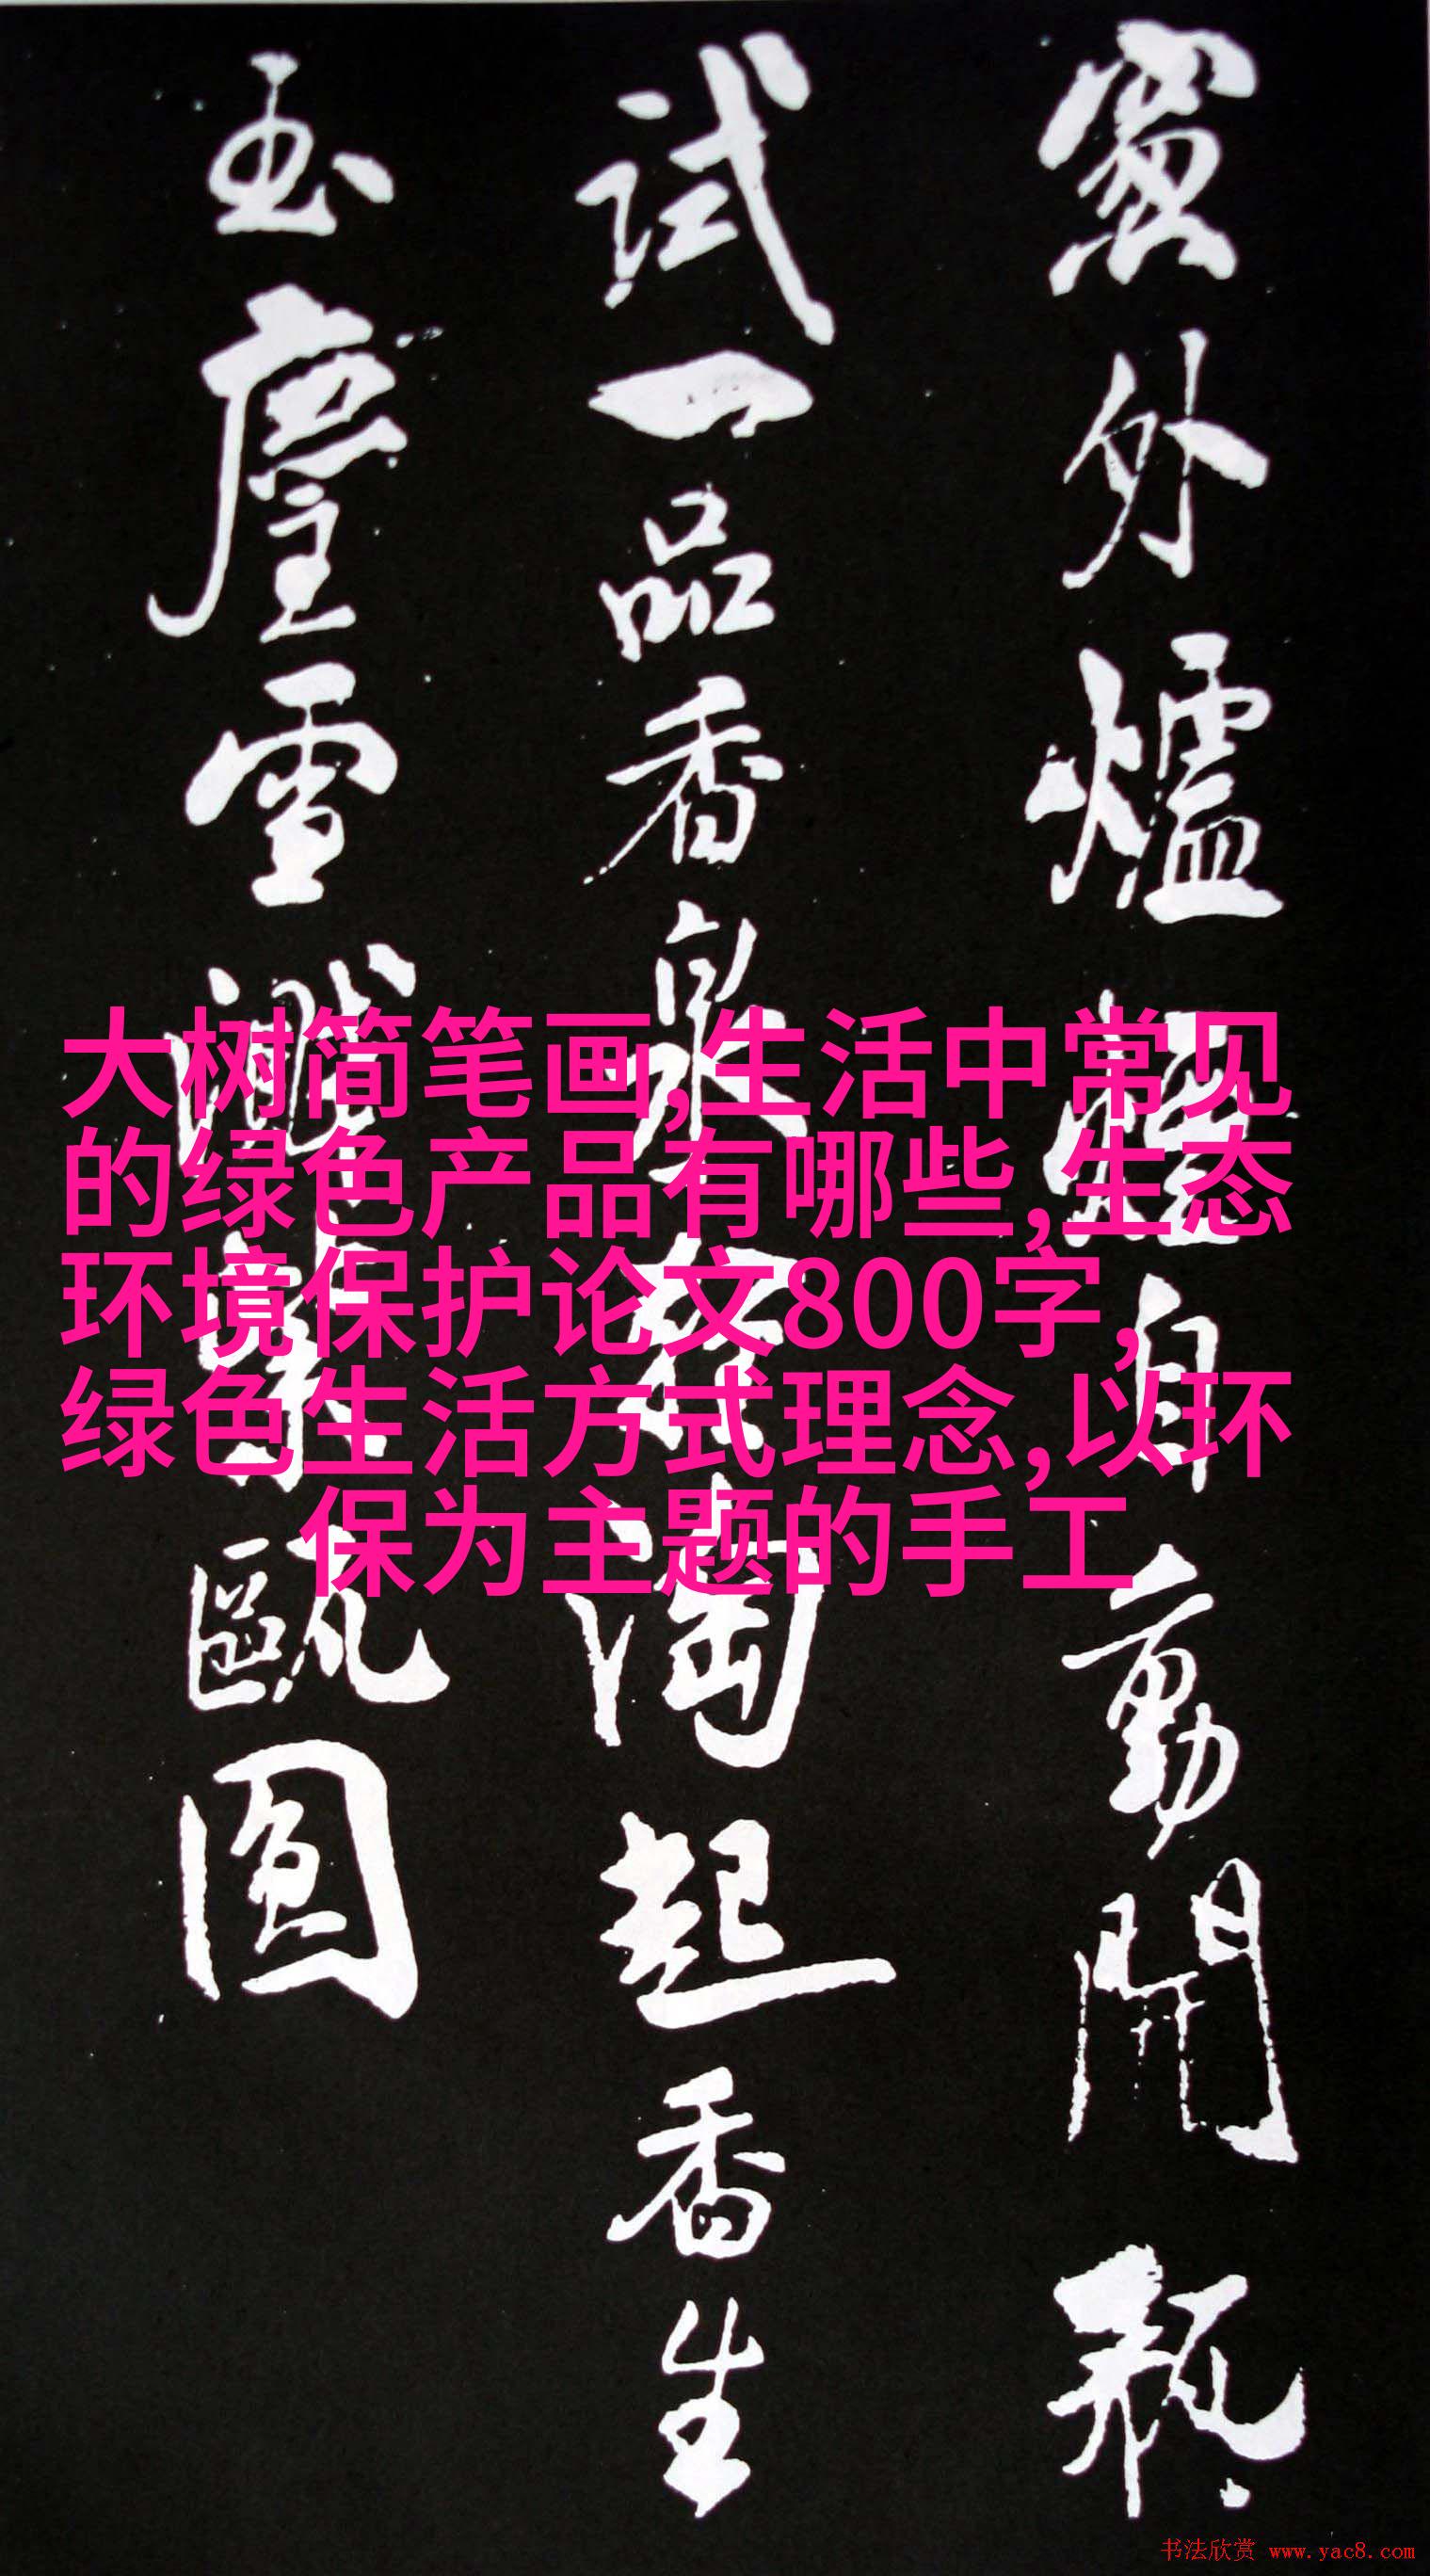 窗外爐烟自動開瓶
试一品香泉
淘起香生
玉麈雪
甌圆
大树简笔画,生活中常见
的绿色产品有哪些,生态
环境保护论文800字,
绿色生活方式理念,以环
保为主题的手工
书法欣赏 www.yac8.com